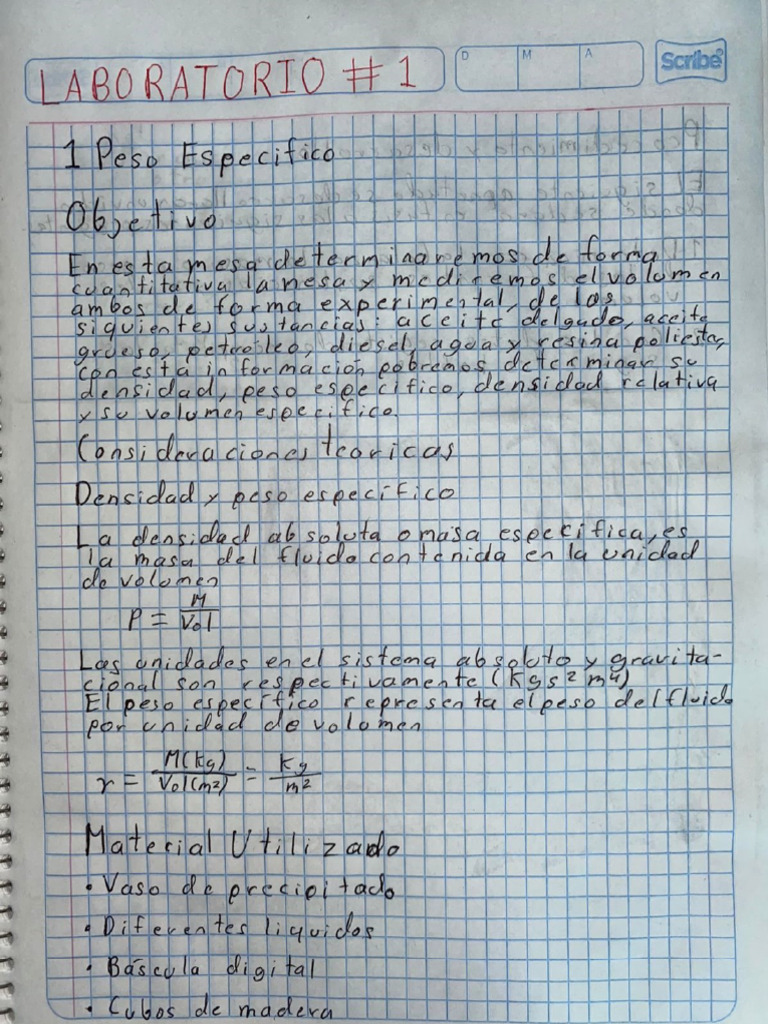 LABORATORIO #1
D M A
Scribe
1 Peso Especifico
Objetivo
En esta mesa determinaremos de forma
cuantitativa la mesa y mediremos el volumen
ambos de forma experimental, de las
siguientes sustancias: aceite delgado, aceite
grueso, petroleo, diesel, agua y resina poliester,
con esta informacion pobremos determinar su
densidad, peso especifico, densidad relativa
y su volumen especifico.
Consideraciones teoricas
Densidad y peso especifico
La densidad absoluta o masa especifica, es
la masa del fluido contenida en la unidad
de volumen
P = M/Vol
Las unidades en el sistema absoluto y gravita-
cional son respectivamente (kgs² m⁴)
El peso especifico representa el peso del fluido
por unidad de volumen
r = M(kg)/Vol(m²) = Kg/m²
Material Utilizado
• Vaso de precipitado
• Diferentes liquidos
• Báscula digital
• Cubos de madera